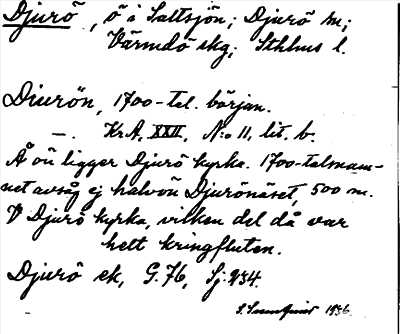 Djurö, ö i Saltsjön; Djurö sn;
Värmdö skg; Sthlms l.
Diurön, 1700-tal. början.
—. Kr.A. XXII, N:o 11, lit. b.
Å ön ligger Djurö kyrka. 1700-talsnam-
net avsåg ej halvön Djurönäset, 500 m.
V Djurö kyrka, vilken del då var
helt kringfluten.
Djurö ek, G. 76, Sj. 934.
1936.